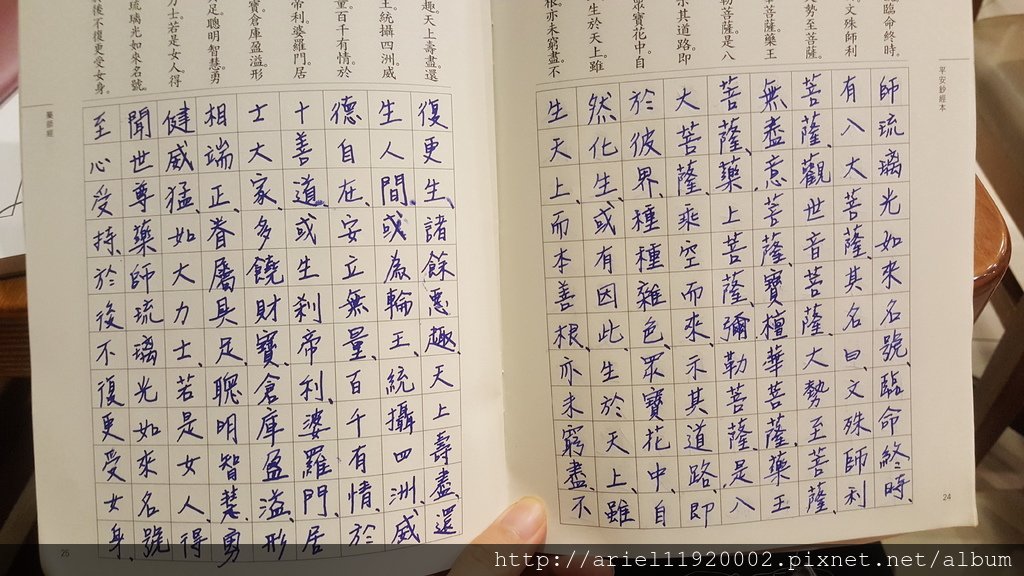 臨命終時。
文殊師利
勢至菩薩
菩薩藥王
勒菩薩是八
示其道路即
眾寶花中。自
生於天上。雖
根亦未窮盡。不
平安鈔經本
師琉璃光如來名號、臨命終時、
有八大菩薩、其名曰文殊師利
菩薩、觀世音菩薩、大勢至菩薩、
無盡意菩薩、寶檀華菩薩、藥王
菩薩、藥上菩薩、彌勒菩薩、是八
大菩薩、乘空而來、示其道路、即
於彼界、種種雜色、眾寶花中、自
然化生、或有因此、生於天上、雖
生天上、而本善根、亦未窮盡、不
24
趣。天上壽盡。還
王。統攝四洲。威
量百千有情。於
帝利。婆羅門。居
寶倉庫盈溢。形
足。聰明智慧。勇
力士。若是女人。得
琉璃光如來名號。
後不復更受女身。
藥師經
復更生、諸餘惡趣、天上壽盡、還
生人間、或為輪王、統攝四洲、威
德自在、安立無量、百千有情、於
十善道、或生剎帝利、婆羅門、居
士大家、多饒財寶、倉庫盈溢、形
相端正、眷屬具足、聰明智慧、勇
健威猛、如大力士、若是女人、得
聞世尊藥師琉璃光如來名號
至心受持、於後不復更受女身、
25
http://ariel11920002.pixnet.net/album